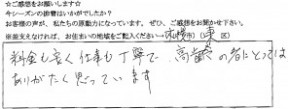 ★ご感想をお願いします★
今シーズンの排雪はいかがでしたか?
お客様の声が、私たちの原動力になっています。ぜひ、ご感想をお聞かせ下さい。
※差支えなければ、お住まいの地域をご記入ください→札幌市(東)区
料金も安く仕事も丁寧で 高齢の者にとっては
ありがたく思っています